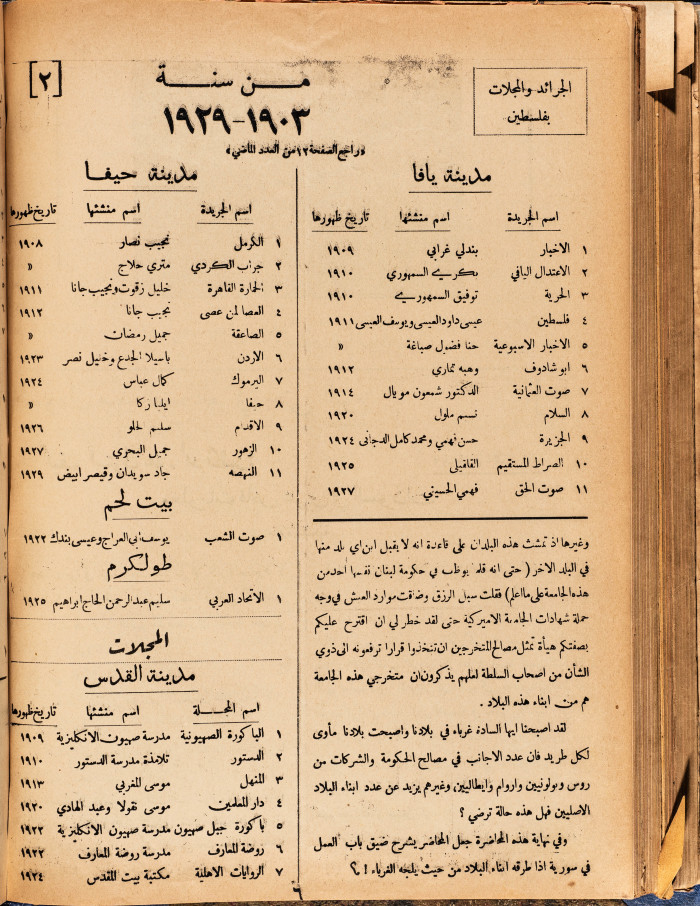 [٢]
الجرائد والمجلات
بفلسطين
من سنة
١٩٠٣-١٩٢٩
«راجع الصفحة ١٢ من العدد الماضي»
مدينة يافا
اسم الجريدة اسم منشئها تاريخ ظهورها
١ الاخبار بندلي غرابي ١٩٠٩
٢ الاعتدال اليافي بكري السمهوري ١٩١٠
٣ الحرية توفيق السمهوري ١٩١٠
٤ فلسطين عيسى داود العيسى ويوسف العيسى ١٩١١
٥ الاخبار الاسبوعية حنا فضول صباغة »
٦ ابو شادوف وهبه تماري ١٩١٢
٧ صوت العثمانية الدكتور شمعون مويال ١٩١٤
٨ السلام نسيم ملول ١٩٢٠
٩ الجزيرة حسن فهمي ومحمد كامل الدجاني ١٩٢٤
١٠ الصراط المستقيم القلقيلي ١٩٢٥
١١ صوت الحق فهمي الحسيني ١٩٢٧
وغيرها اذ تمشت هذه البلدان على قاعدة انه لا يقبل ابن اي بلد منها
في البلد الاخر ( حتى انه قلما يوظف في حكومة لبنان نفسها احد من
هذه الجامعة على ما اعلم ) فقلت سبل الرزق وضاقت موارد العيش في وجه
حملة شهادات الجامعة الاميركية حتى لقد خطر لي ان اقترح عليكم
بصفتكم هيأة تمثل مصالح المتخرجين ان تتخذوا قرارا ترفعونه الى ذوي
الشأن من اصحاب السلطة لعلهم يذكرون ان متخرجي هذه الجامعة
هم من ابناء هذه البلاد .
لقد اصبحنا ايها السادة غرباء في بلادنا واصبحت بلادنا مأوى
لكل طريد فان عدد الاجانب في مصالح الحكومة والشركات من
روس وبولونيين واروام وايطاليين وغيرهم يزيد عن عدد ابناء البلاد
الاصليين فهل هذه حالة ترضي ؟
وفي نهاية هذه المحاضرة جعل المحاضر يشرح ضيق باب العمل
في سورية اذا طرقه ابناء البلاد من حيث يلجه الغرباء ! . ؟
مدينة حيفا
اسم الجريدة اسم منشئها تاريخ ظهورها
١ الكرمل نجيب نصار ١٩٠٨
٢ جراب الكردي متري حلاج »
٣ الخمارة القاهرة خليل زقوت ونجيب جانا ١٩١١
٤ العصا لمن عصى نجيب جانا ١٩١٢
٥ الصاعقة جميل رمضان »
٦ الاردن باسيلا الجدع وخليل نصر ١٩٢٣
٧ اليرموك كمال عباس ١٩٢٤
٨ حيفا ايليا زكا »
٩ الاقدام سليم الحلو ١٩٢٦
١٠ الزهور جميل البحري ١٩٢٧
١١ النهضه جاد سويدان وقيصر ابيض ١٩٢٩
بيت لحم
١ صوت الشعب يوسف ابي العراج وعيسى بندك ١٩٢٢
طولكرم
١ الاتحاد العربي سليم عبد الرحمن الحاج ابراهيم ١٩٢٥
المجلات
مدينة القدس
اسم المجلة اسم منشئها تاريخ ظهورها
١ الباكورة الصهيونية مدرسة صهيون الانكليزية ١٩٠٩
٢ الدستور تلامذة مدرسة الدستور ١٩١٠
٣ المنهل موسى المغربي ١٩١٣
٤ دار المعلمين موسى نقولا وعبد الهادي ١٩٢٠
٥ باكورة جبل صهيون مدرسة صهيون الانكليزية ١٩٢٢
٦ روضة المعارف مدرسة روضة المعارف ١٩٢٢
٧ الروايات الاهلية مكتبة بيت المقدس ١٩٢٤